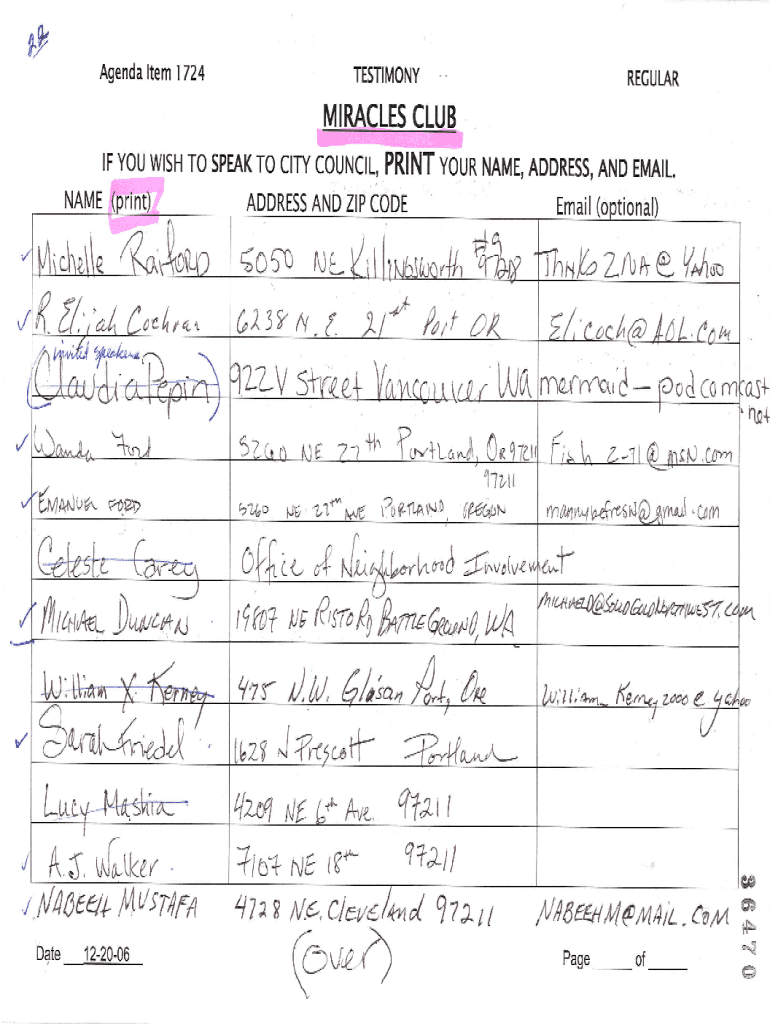 22
Agenda Item 1724 TESTIMONY REGULAR
MIRACLES CLUB
IF YOU WISH TO SPEAK TO CITY COUNCIL, PRINT YOUR NAME, ADDRESS, AND EMAIL.
NAME (print) ADDRESS AND ZIP CODE Email (optional)
Michelle Raiford 5050 NE Killingsworth #9 97218 ThNKSZNA@Yahoo
R. Elijah Cochran 6238 N.E. 21st Port OR Elicoch@AOL.com
invited speakers
Claudia Pepin 922 V Street Vancouver WA mermaid-pod comcast
.net
Wanda Ford 5260 NE 27th Portland, OR 97211 Fish 2-71@msn.com
97211
EMANUEL FORD 5260 NE 27th AVE PORTLAND, OREGON mannybefresh@gmail.com
Celeste Carey Office of Neighborhood Involvement
MICHAEL DUNCAN 19807 NE RISTO RD, BATTLE GROUND, WA MICHAELD@SOLIDGOLDNORTHWEST.COM
William X. Kerney 475 N.W. Glisan Port, Ore William_Kerney2000@yahoo
Sarah Friedel 1628 N Prescott Portland
Lucy Mashia 4209 NE 6th Ave. 97211
A.J. Walker 7107 NE 18th 97211
NABEEH MUSTAFA 4728 N.E. Cleveland 97211 NABEEHM@MAIL.COM
(over)
Date 12-20-06 Page ____ of ____
36470